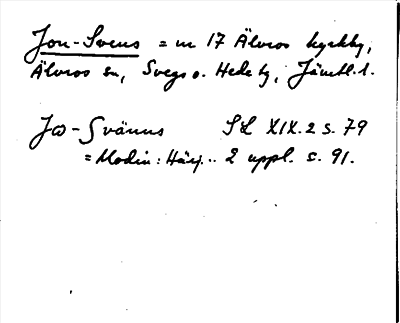 Jon-Svens = nr 17 Älvros kyrkby,
Älvros sn, Svegs o. Hede tg, Jämtl. l.
Jω-Svänns SL XIX.2 s. 79
= Modin: Härj... 2 uppl. s. 91.